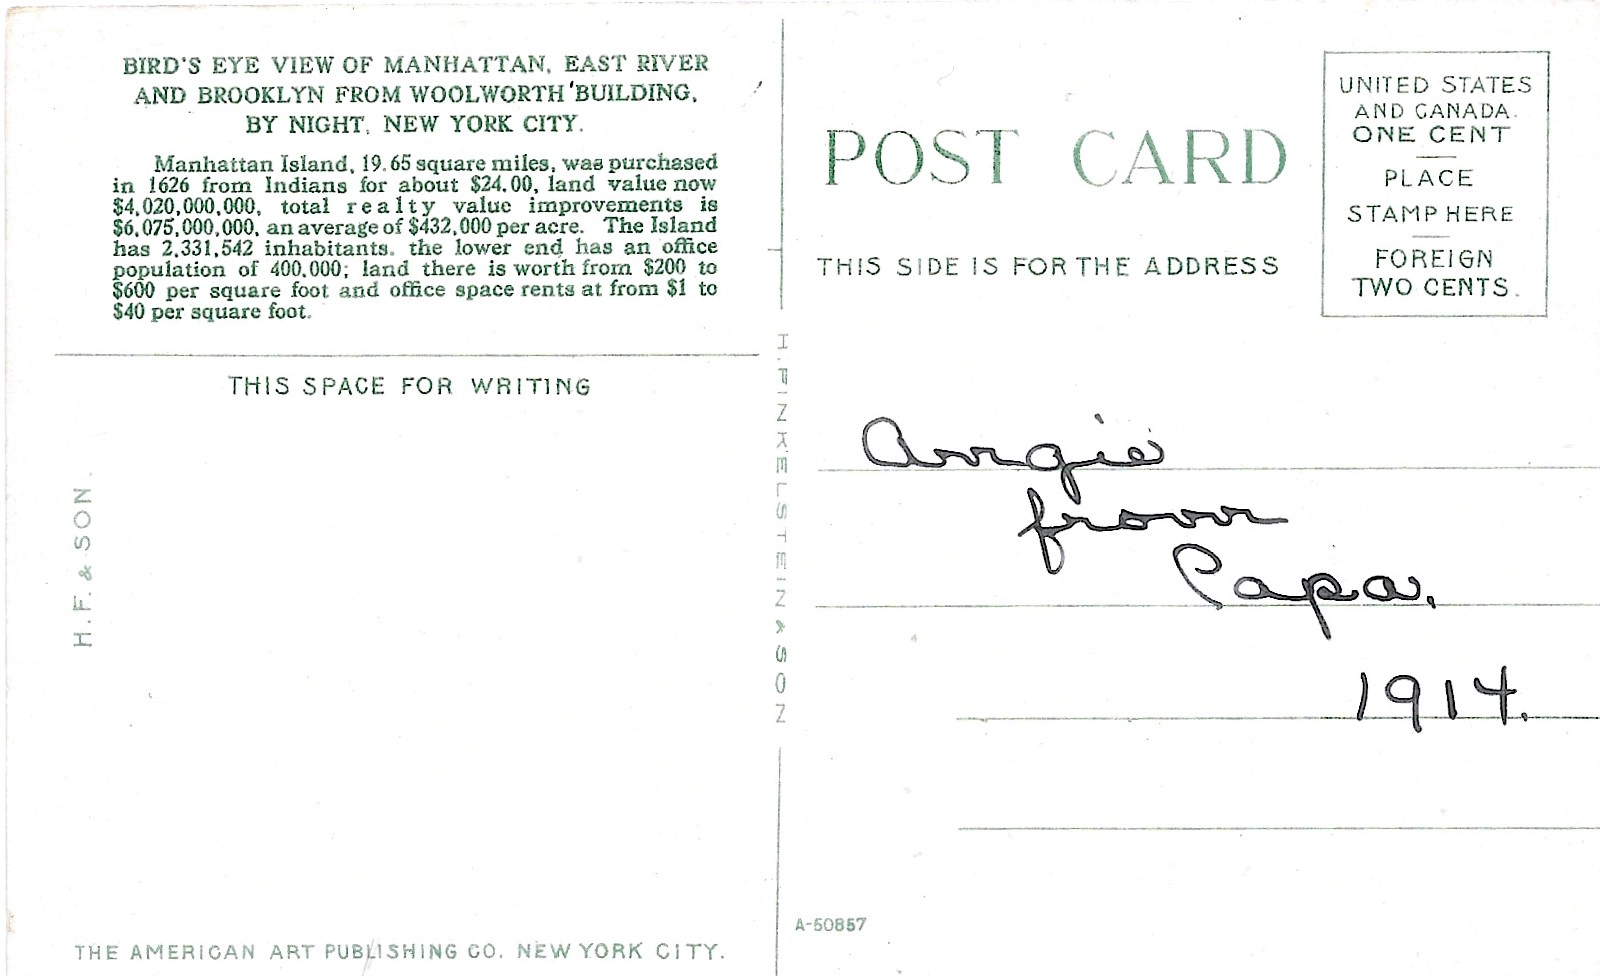 BIRD'S EYE VIEW OF MANHATTAN, EAST RIVER
AND BROOKLYN FROM WOOLWORTH BUILDING,
BY NIGHT, NEW YORK CITY.
Manhattan Island, 19.65 square miles, was purchased
in 1626 from Indians for about $24.00, land value now
$4,020,000,000, total realty value improvements is
$6,075,000,000, an average of $432,000 per acre. The Island
has 2,331,542 inhabitants. the lower end has an office
population of 400,000; land there is worth from $200 to
$600 per square foot and office space rents at from $1 to
$40 per square foot.
THIS SPACE FOR WRITING
H. F. & SON.
THE AMERICAN ART PUBLISHING CO. NEW YORK CITY.
H. FINKELSTEIN & SON
POST CARD
THIS SIDE IS FOR THE ADDRESS
UNITED STATES
AND CANADA.
ONE CENT
PLACE
STAMP HERE
FOREIGN
TWO CENTS.
Angie
from
Papa.
1914.
A-50857